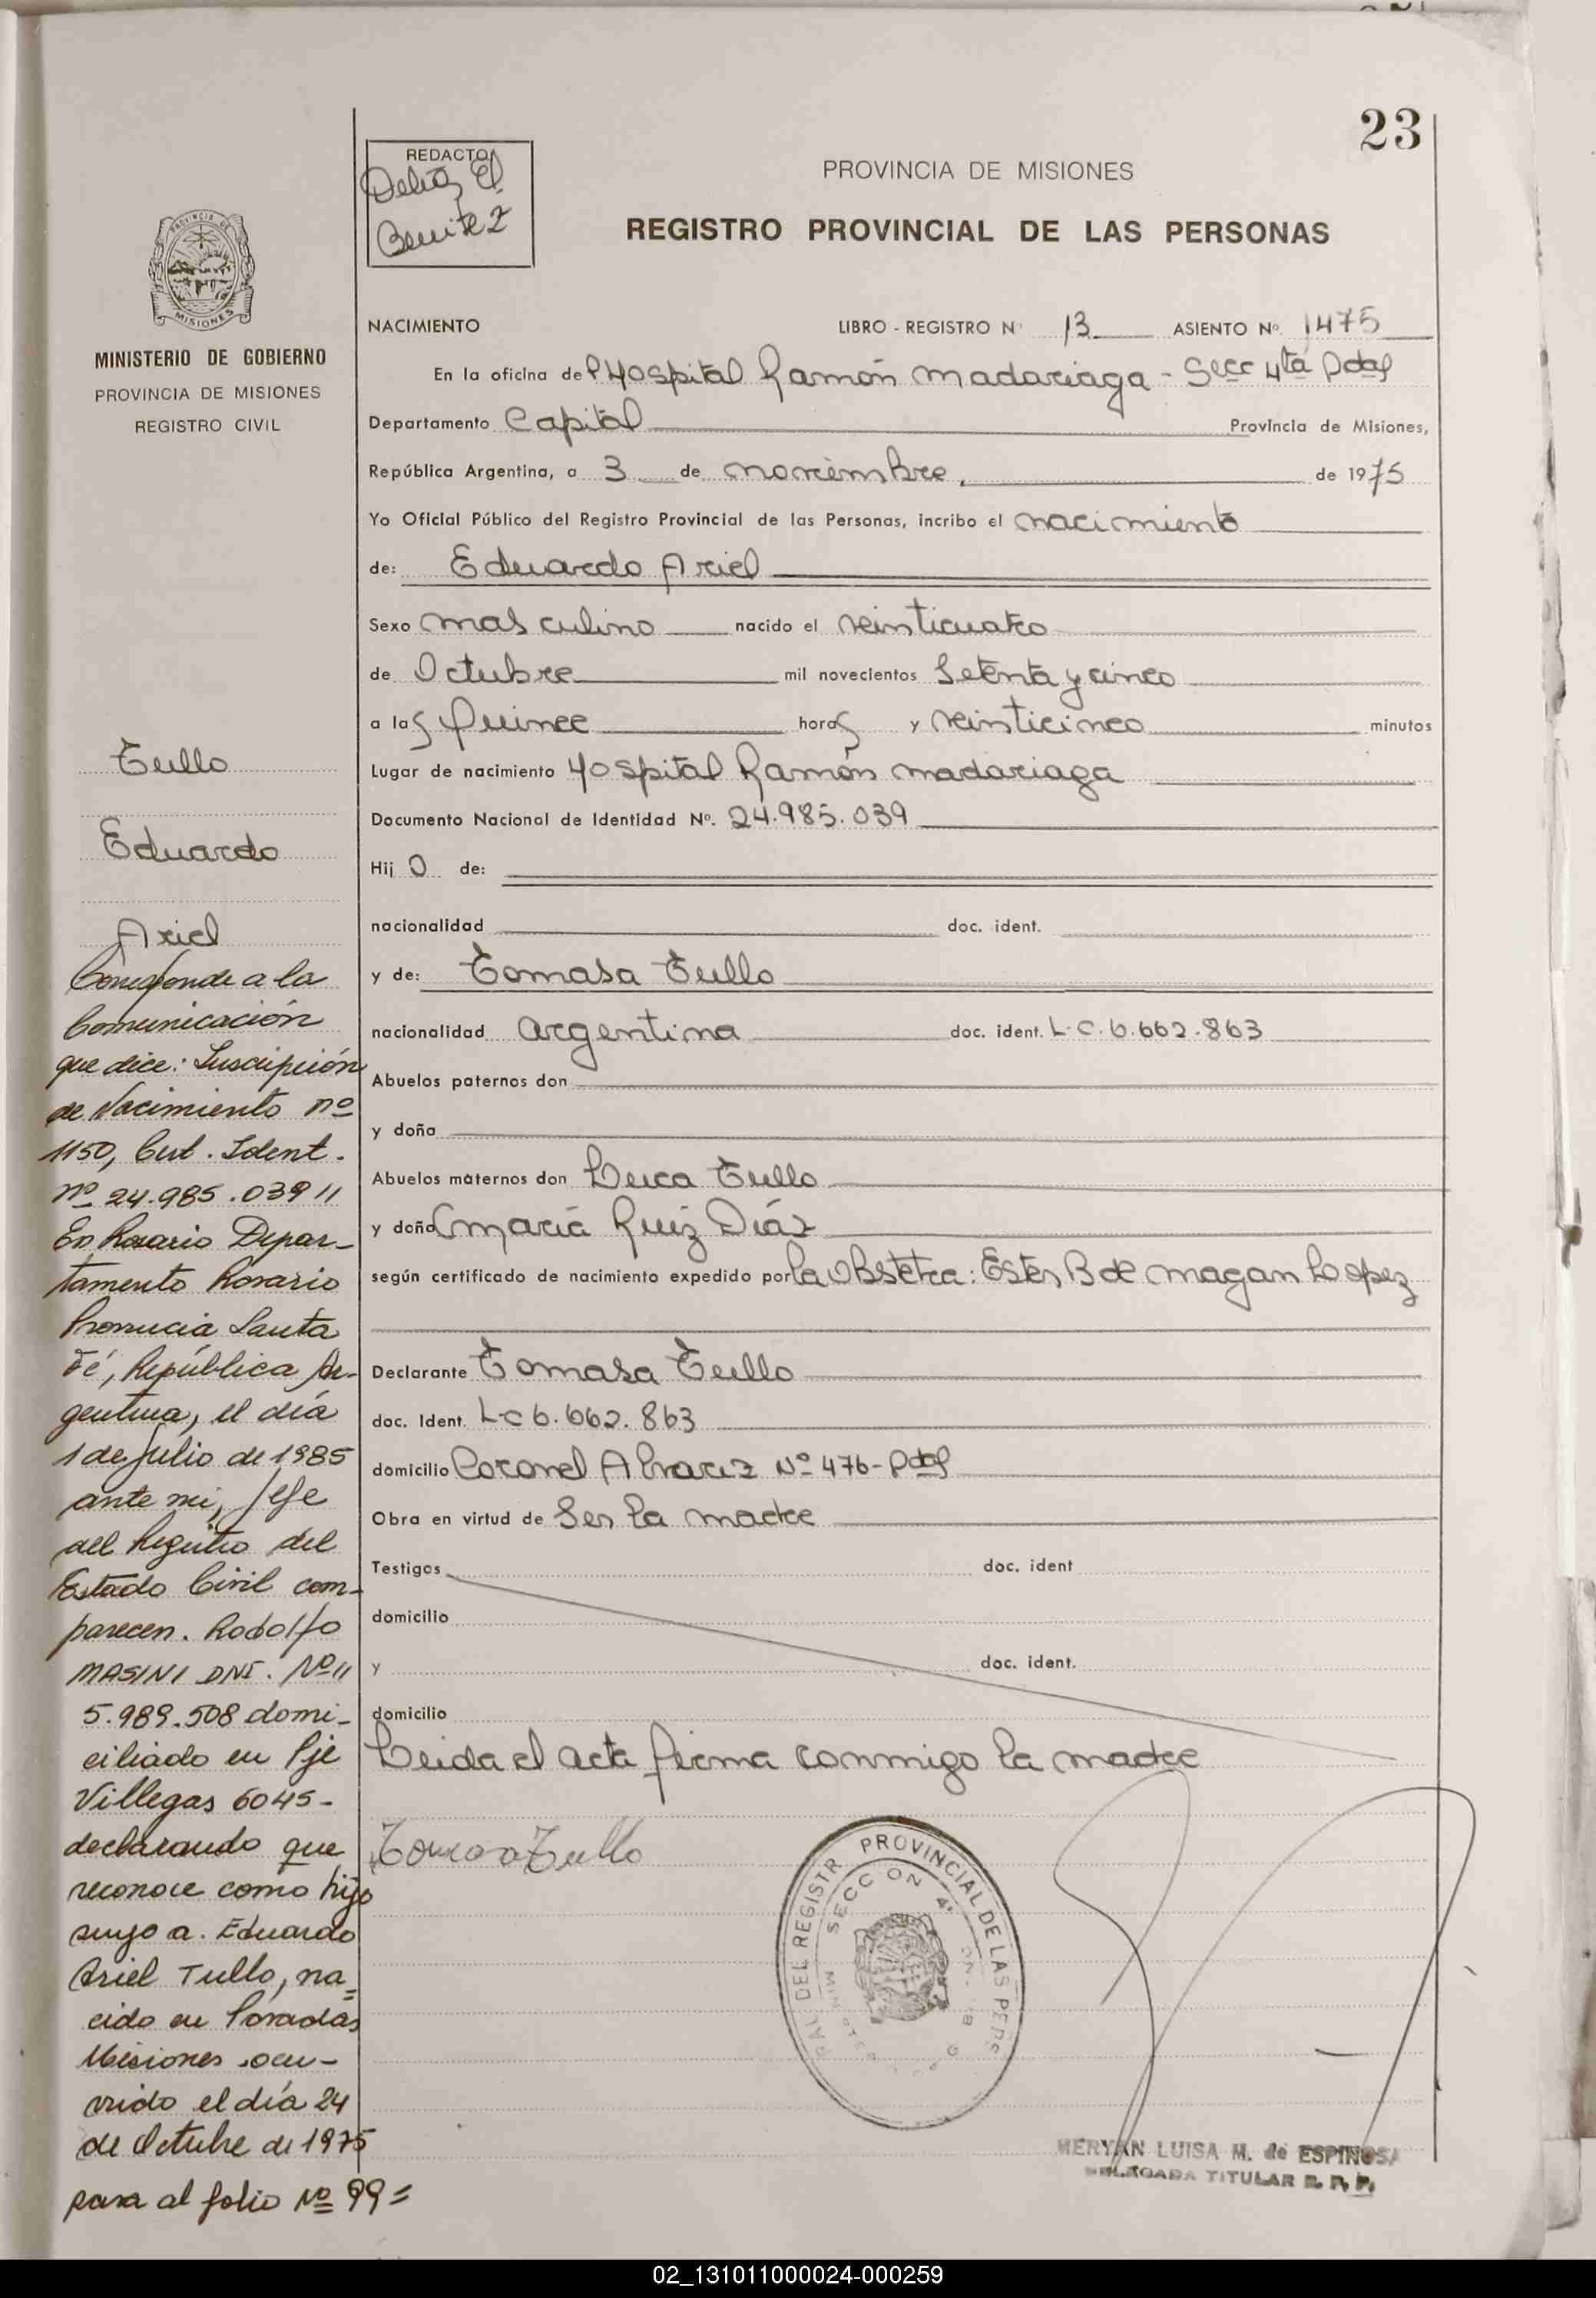 23
REDACTO
Delia E.
Benitez
PROVINCIA DE MISIONES
REGISTRO PROVINCIAL DE LAS PERSONAS
MISIONES
MINISTERIO DE GOBIERNO
PROVINCIA DE MISIONES
REGISTRO CIVIL
NACIMIENTO LIBRO - REGISTRO Nº 13 ASIENTO Nº. 1475
En la oficina del Hospital Ramón Madariaga - Secc 4ta Pdas
Departamento Capital Provincia de Misiones,
República Argentina, a 3 de noviembre, de 1975
Yo Oficial Público del Registro Provincial de las Personas, incribo el nacimiento
de: Eduardo Ariel
Sexo masculino nacido el veinticuatro
de Octubre mil novecientos Setenta y cinco
a las quince horas y veinticinco minutos
Lugar de nacimiento Hospital Ramón Madariaga
Documento Nacional de Identidad Nº. 24.985.039
Hij o de:
nacionalidad doc. ident.
y de: Tomasa Tullo
nacionalidad argentina doc. ident. L.C. 6.662.863
Abuelos paternos don
y doña
Abuelos maternos don Tullo
y doña María Ruiz Díaz
según certificado de nacimiento expedido por la Obstetra: Ester B de Magan Loopez
Declarante Tomasa Tullo
doc. Ident. L-C 6.662.863
domicilio Coronel Alvarez Nº 476- Pdas
Obra en virtud de Ser la madre
Testigos doc. ident
domicilio
y doc. ident.
domicilio
Leida el acta firma conmigo la madre
Tomasa Tullo
Tullo
Eduardo
Ariel
Corresponde a la
Comunicación
que dice: Inscripción
de Nacimiento nº
1150, Cert. Ident.
nº 24.985.039 //
En Rosario Depar-
tamento Rosario
Provincia Santa
Fé, República Ar-
gentina, el día
1 de Julio de 1985
ante mi, Jefe
del Registro del
Estado Civil com-
parecen. Rodolfo
MASINI DNI. Nº //
5.989.508 domi-
ciliado en Pje
Villegas 6045-
declarando que
reconoce como hijo
suyo a. Eduardo
Ariel Tullo, na=
cido en Posadas
Misiones ocu-
rrido el día 24
de Octubre de 1975
pasa al folio Nº 99=
PROVINCIAL DE LAS PERS
DEL REGISTR
SECC ON 4ª
MERYAN LUISA M. de ESPINOSA
DELEGADA TITULAR R. P. P.
02_131011000024-000259